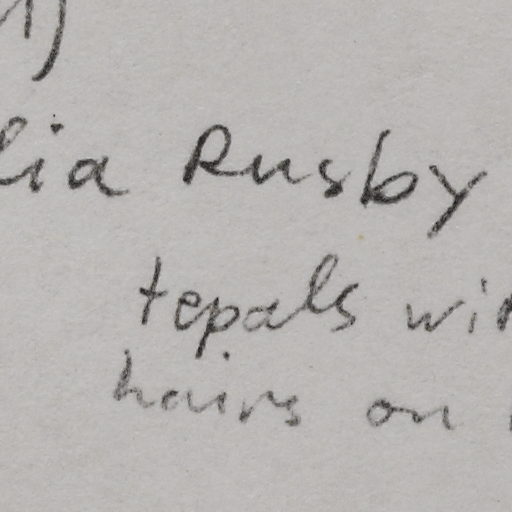 1)
lia Rusby
tepals wit
hairs on